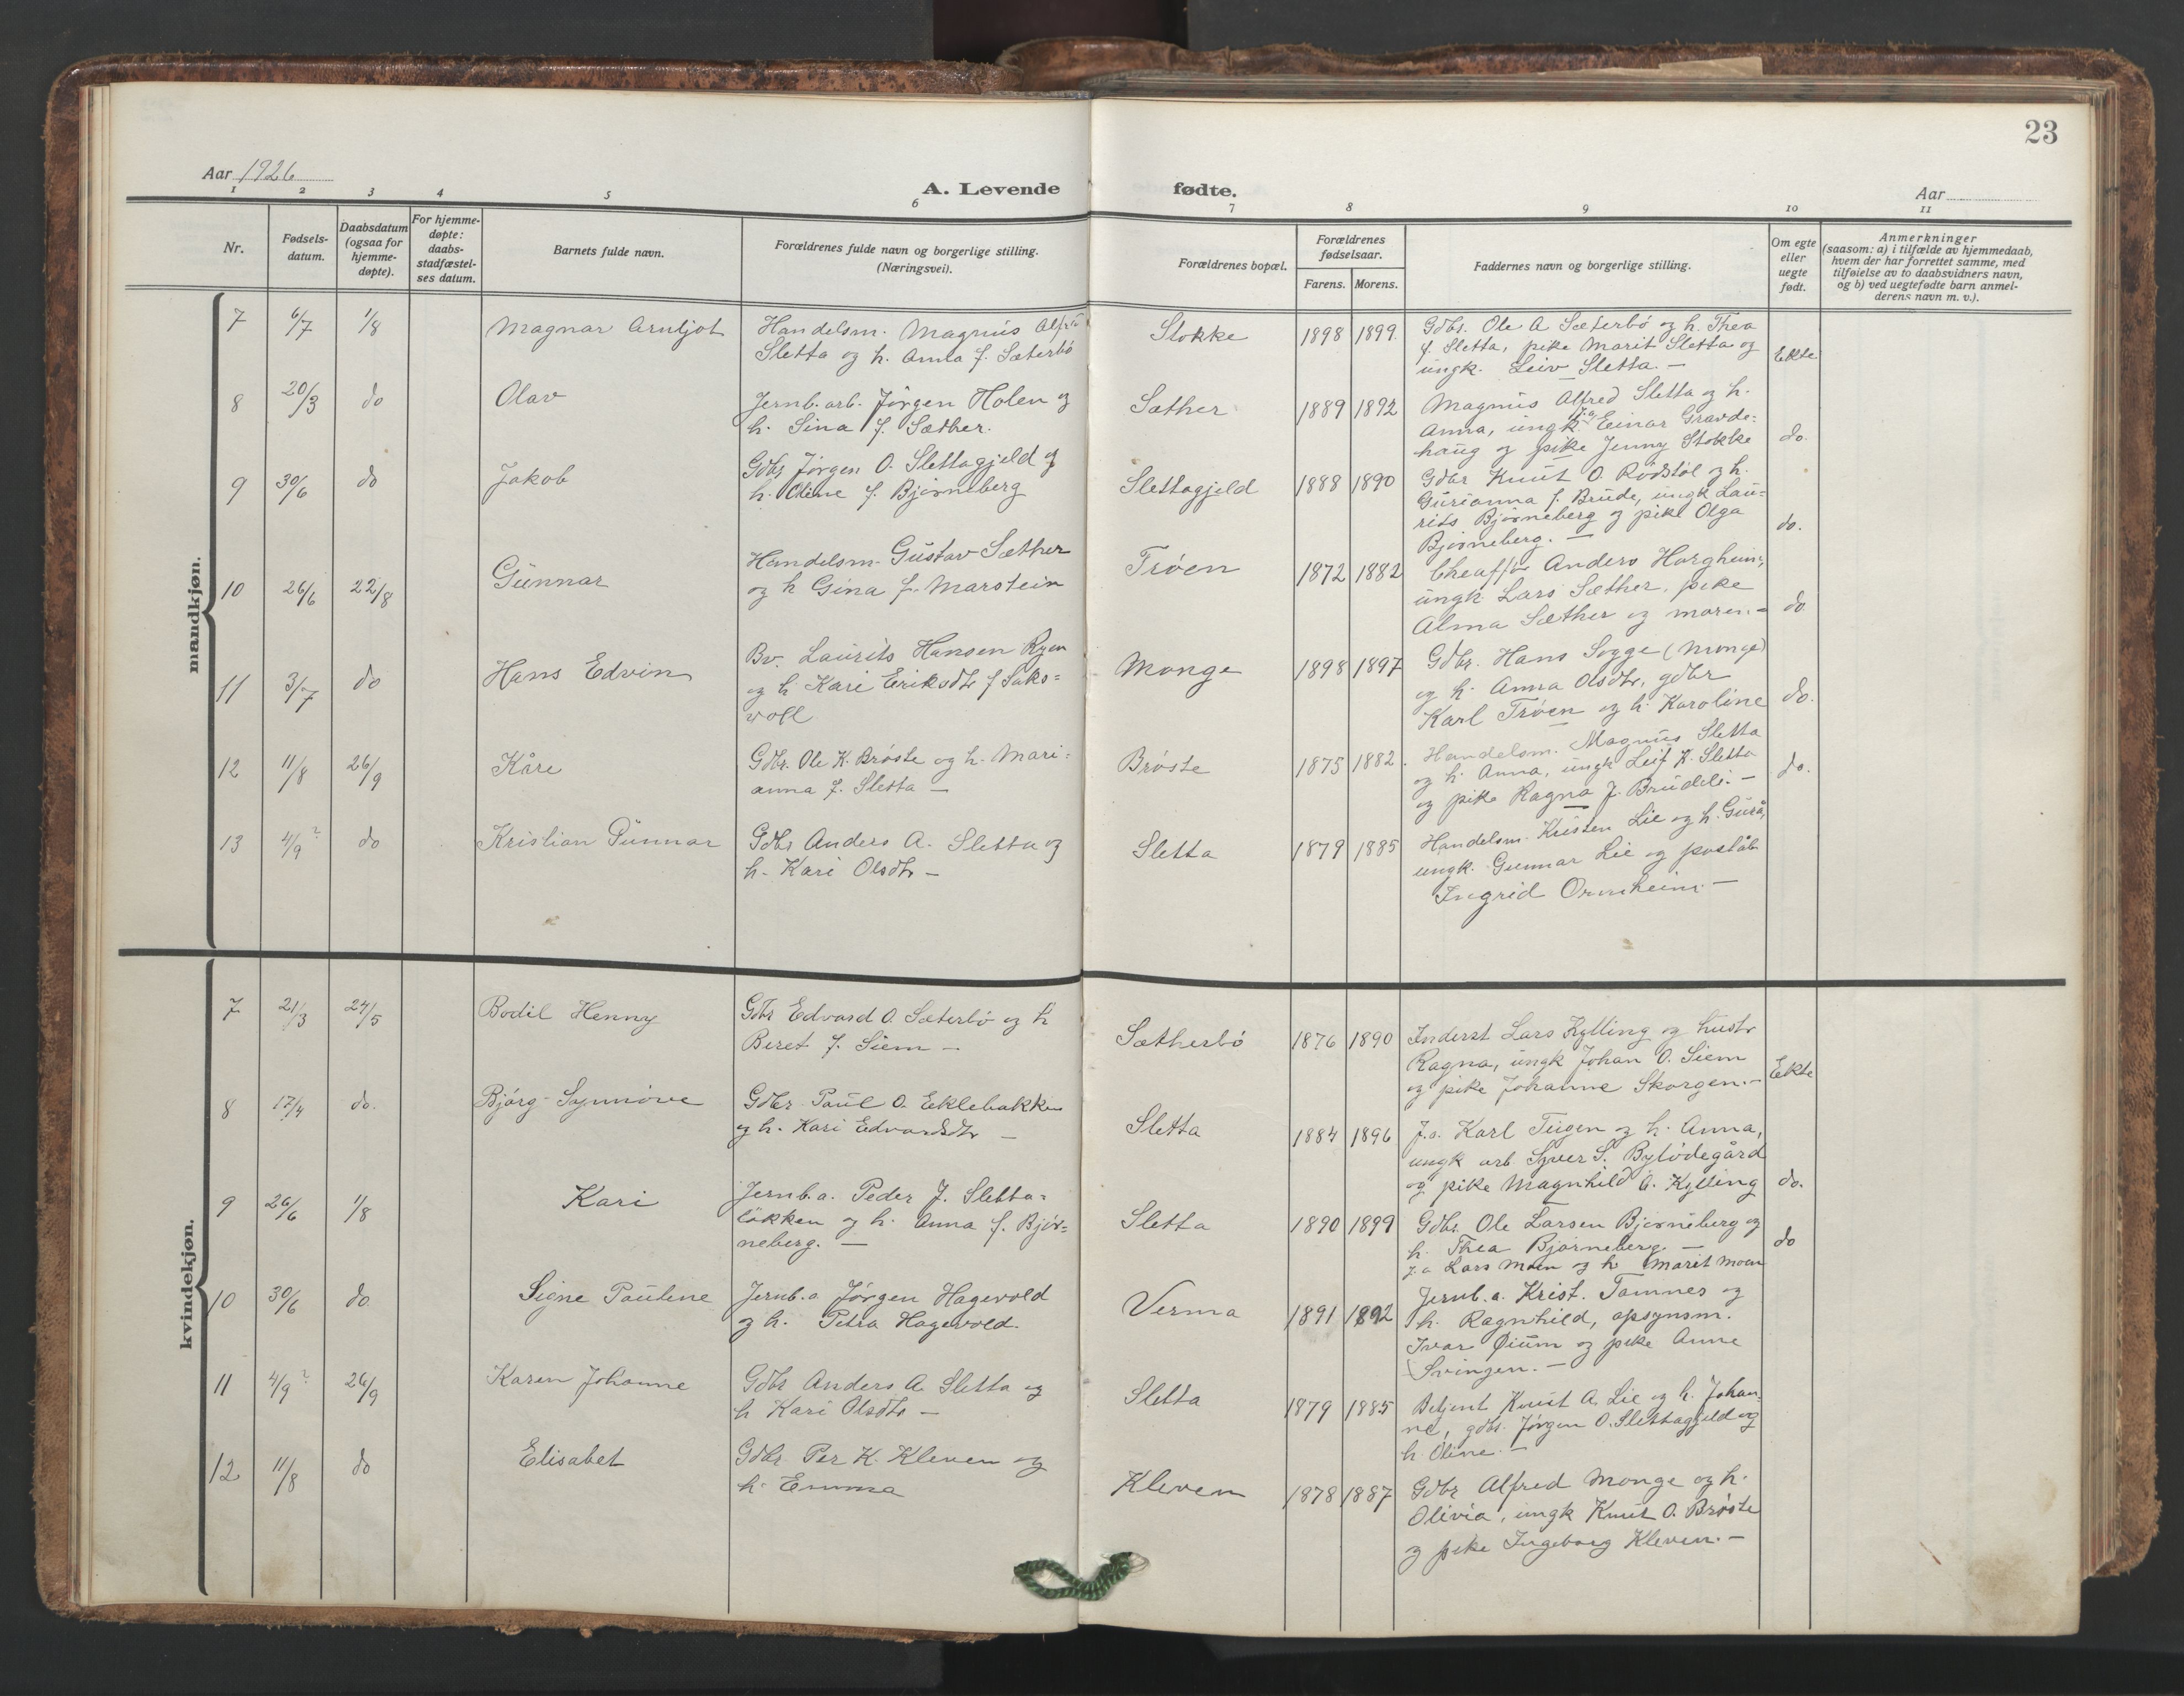 23
Aar 1926
A. Levende fødte.
Aar
1 2 3 4 5 6 7 8 9 10 11
Nr.
Fødsels-
datum.
Daabsdatum
(ogsaa for
hjemme-
døpte).
For hjemme-
døpte:
daabs-
stadfæstel-
ses datum.
Barnets fulde navn.
Forældrenes fulde navn og borgerlige stilling.
(Næringsvei).
Forældrenes bopæl.
Forældrenes
fødselsaar.
Farens. Morens.
Faddernes navn og borgerlige stilling.
Om egte
eller
uegte
født.
Anmerkninger
(saasom: a) i tilfælde av hjemmedaab,
hvem der har forrettet samme, med
tilføielse av to daabsvidners navn,
og b) ved uegtefødte barn anmel-
derens navn m. v.).
mandkjøn.
7 6/7 1/8 Magnar Arnljot
Handelsm. Magnus Alfred
Sletta og h. Anna f. Sæterbö
Stokke 1898 1899
Gdbr. Ole A Sæterbö og h. Thea
f. Sletta, pike Marit Sletta og
ungk. Leiv Sletta. –
Ekte
8 20/3 do Olav
Jernb. arb. Jörgen Holen og
h. Sina f. Sæther.
Sæther 1889 1892
Magnus Alfred Sletta og h.
Anna, ungk. J.a. Einar Gravde-
haug og pike Jenny Stokke
do.
9 30/6 do Jakob
Gdbr Jörgen O. Slettagjeld og
h. Oline f. Bjørneberg
Slettagjeld 1888 1890
Gdbr Knut O. Rödstöl og h.
Gurianna f. Brude, ungk Lau-
rits Bjørneberg og pike Olga
Bjørneberg. –
do.
10 26/6 22/8 Gunnar
Handelsm. Gustav Sæther
og h Gina f. Marstein
Tröen 1872 1882
Cheaffør Anders Horgheim,
ungk. Lars Sæther, pike
Alma Sæther og moren. –
do
11 3/7 do Hans Edvin
Bv. Laurits Hansen Ryen
og h. Kari Eriksdtr f Saks-
voll
Monge 1898 1897
Gdbr. Hans Sogge (Monge)
og h. Anna Olsdtr, gdbr
Karl Tröen og h. Karoline
do.
12 11/8 26/9 Kåre
Gdbr. Ole K. Bröste og h. Mari-
anna f. Sletta –
Bröste 1875 1882
Handelsm. Magnus Sletta
og h. Anna, ungk Leif K. Sletta
og pike Ragna J. Brudeli. –
do.
13 4/9 ? do Kristian Gunnar
Gdbr Anders A. Sletta og
h. Kari Olsdtr –
Sletta 1879 1885
Handelsm. Kristen Lie og h. Gurå,
ungk. Gunnar Lie og poståb
Ingrid Ormheim. –
kvindekjøn.
7 21/3 24/5 Bodil Henny
Gdbr Edvard O. Sæterbö og h
Beret f. Siem –
Sætherbö 1876 1890
Inderst Lars Kylling og hustr
Ragna, ungk Johan O. Siem
og pike Johanne Skorgen. –
Ekte
8 17/4 do. Bjørg Synnöve
Gdbr Paul O. Eklebakken
og h. Kari Edvardsdtr –
Sletta 1884 1896
J.a. Karl Tugen og h. Anna,
ungk arb. Syver S. Bylödegård
og pike Magnhild A. Kylling
do.
9 26/6 1/8 Kari
Jernb. a. Peder J. Sletta-
lökken og h. Anna f. Bjør-
neberg. –
Sletta 1890 1899
Gdbr. Ole Larsen Bjørneberg og
h. Thea Bjørneberg. –
J.a Lars Moen og h Marit Moen
do
10 30/6 do Signe Pauline
Jernb.a Jørgen Hagevold
og h. Petra Hagevold.
Verma 1891 1892
Jernb. a. Krist. Tomnes og
h. Ragnhild, opsynsm.
Ivar Øium og pike Anne
Svingen. –
11 4/9 ? 26/9 Karen Johanne
Gdbr Anders A Sletta og
h Kari Olsdtr –
Sletta 1879 1885
Betjent Knut A. Lie og h. Johan-
ne, gdbr. Jörgen O. Slettagjeld og
h. Oline. –
12 11/8 do Elisabet
Gdbr. Per K. Kleven og
h. Emma
Kleven 1878 1887
Gdbr Alfred Monge og h.
Olivia, ungk Knut O. Bröste
og pike Ingeborg Kleven. –